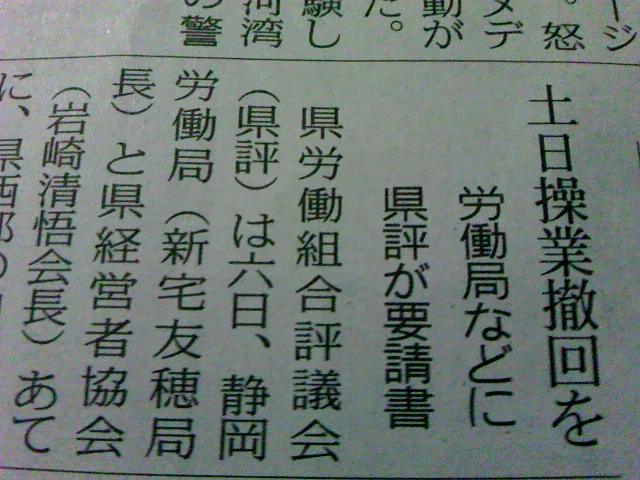 ージ
。怒
メデ
動が
た。
験し
河湾
の警
土日操業撤回を
労働局などに
県評が要請書
県労働組合評議会
（県評）は六日、静岡
労働局（新宅友穂局
長）と県経営者協会
（岩崎清悟会長）あて
に、県西部の